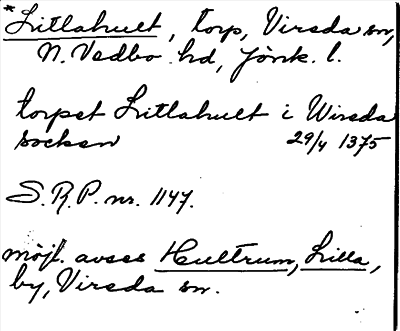 *Litlahult, torp, Vireda sn,
N. Vedbo hd, Jönk. l.
torpet Litlahult i Wireda
socken 29/4 1375
S.R.P. nr. 1147.
möjl. avses Hultrum, Lilla,
by, Vireda sn.